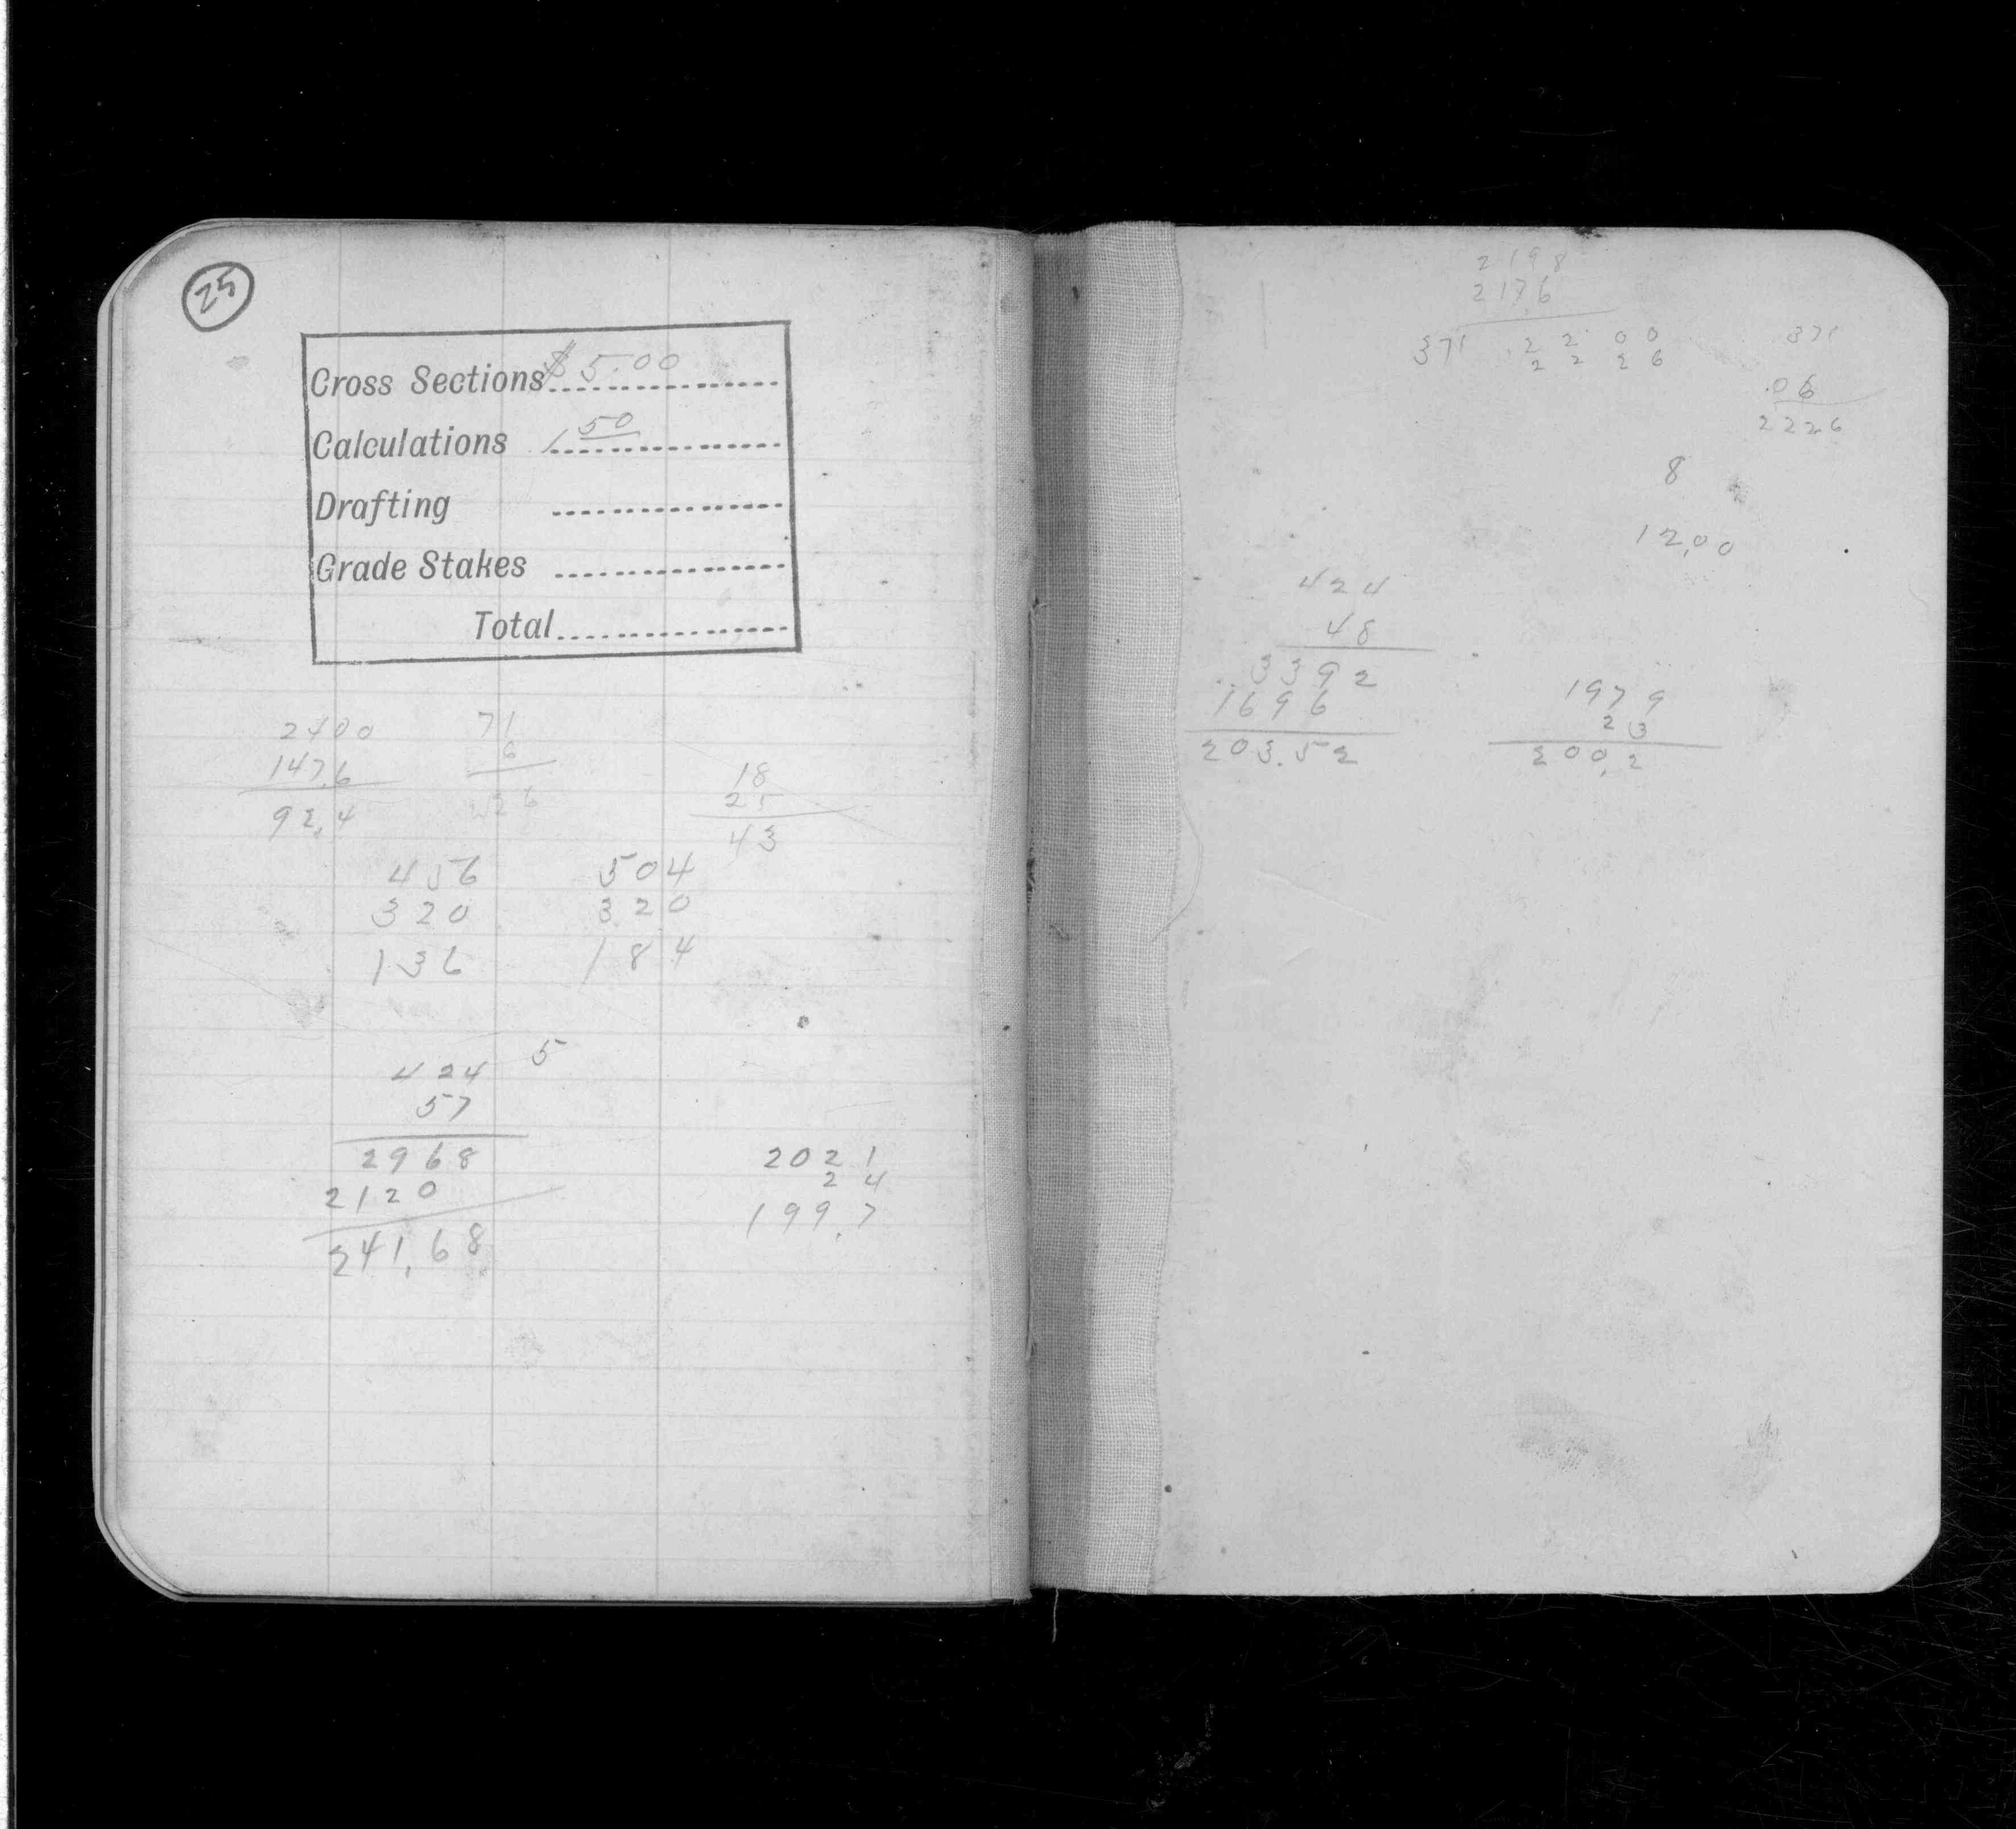 25
Cross Sections $5.00
Calculations 1 50
Drafting
Grade Stakes
Total
2400
147.6
92.4
71
6
18
25
43
456
320
136
504
320
184
5
424
57
2968
2120
241.68
2021
24
199.7
2198
2176
371 .2200
2226
371
.06
2226
8
12,00
424
48
3392
1696
203.52
1979
23
200.2